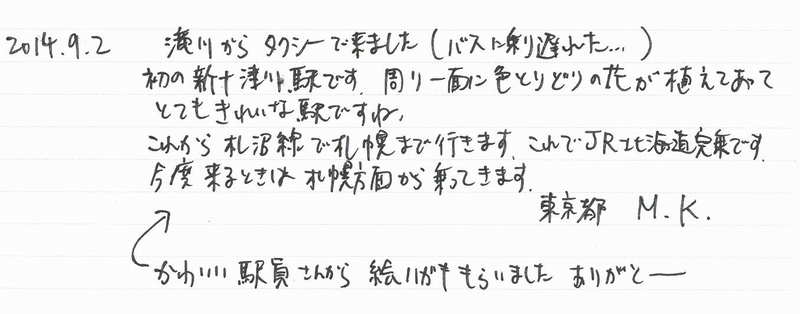 2014.9.2 滝川からタクシーで来ました(バスに乗り遅れた…)
初の新十津川駅です。周り一面に色とりどりの花が植えてあって
とてもきれいな駅ですね。
これから札沼線で札幌まで行きます。これでJR北海道完乗です。
今度来るときは札幌方面から乗ってきます。
東京都 M.K.
かわいい駅員さんから絵ハガキもらいました ありがとー